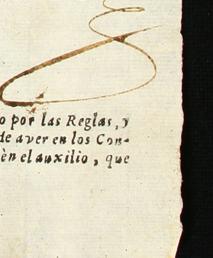 o por las Reglas, y
de aver en los Con-
èn el auxilio, que